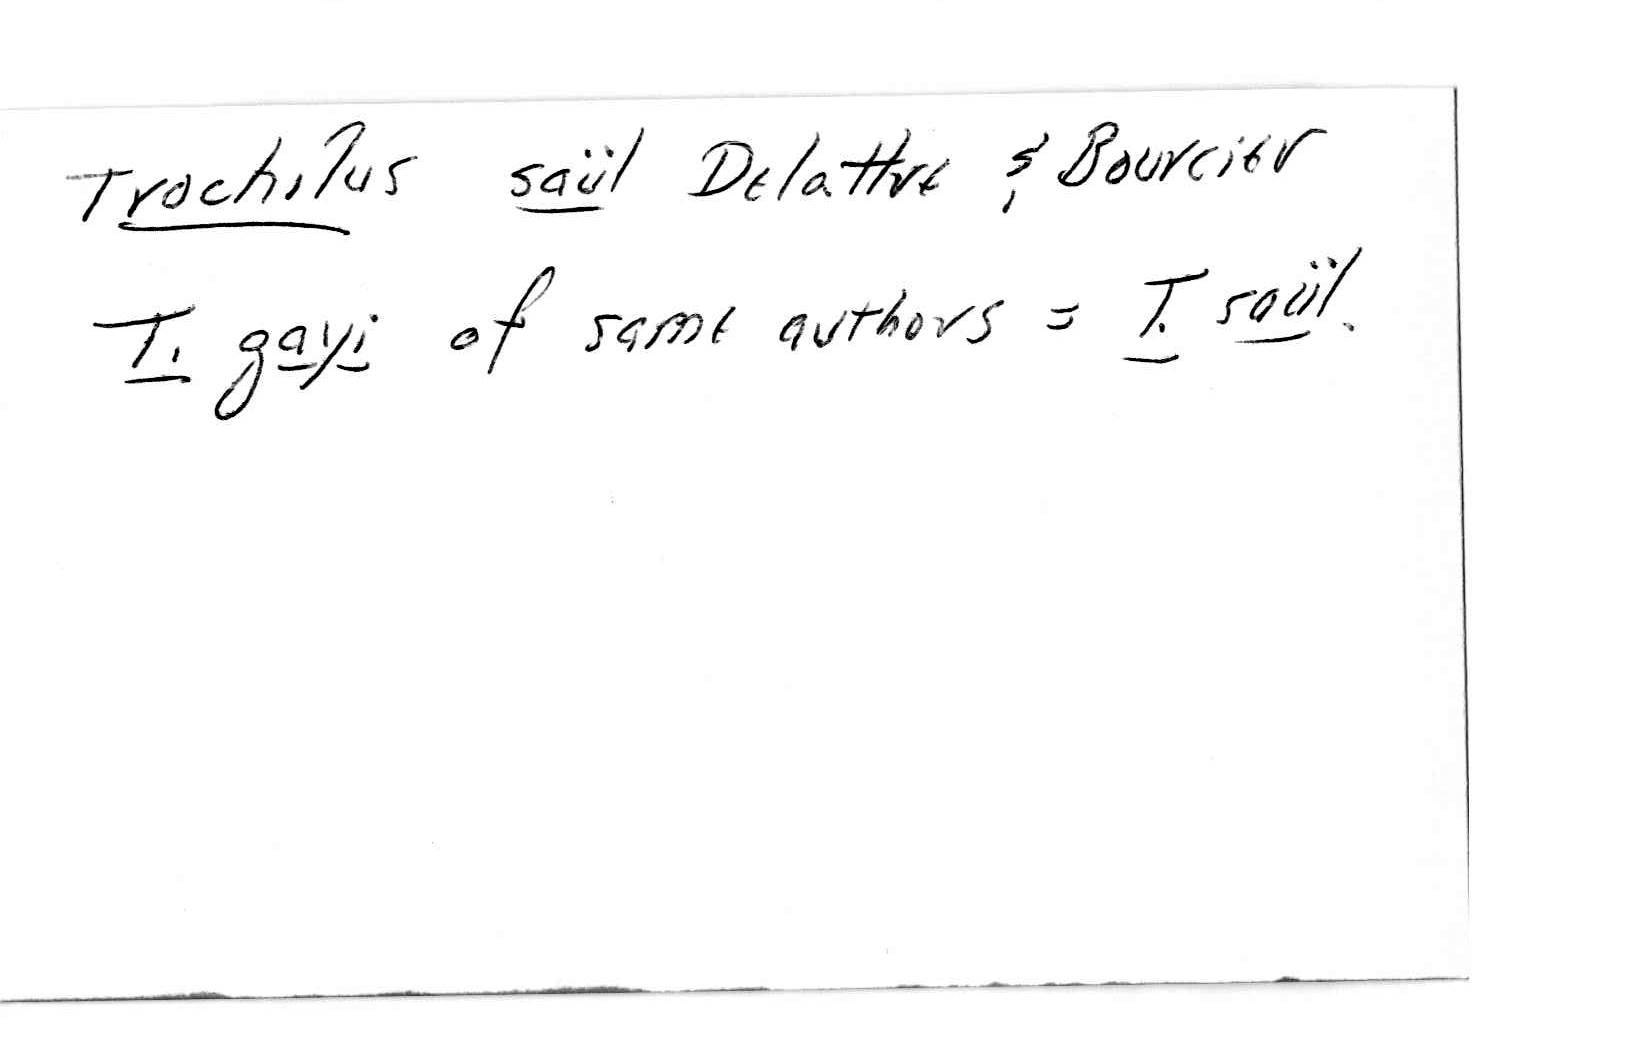 Trochilus saül Delattre & Bourcier
T. gayi of same authors = T. saül.